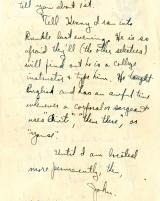 till you about 1st.
Tell Kenny I ran into
Rumble last evening. He is so
afraid they'll (the other selectees)
will find out he is a college
instructor & type him. He taught
English and has an awful time
whenever a corporal or sergeant
uses "ain't," "then there," or
"yours."
Until I am located
more permanently, the,
John.